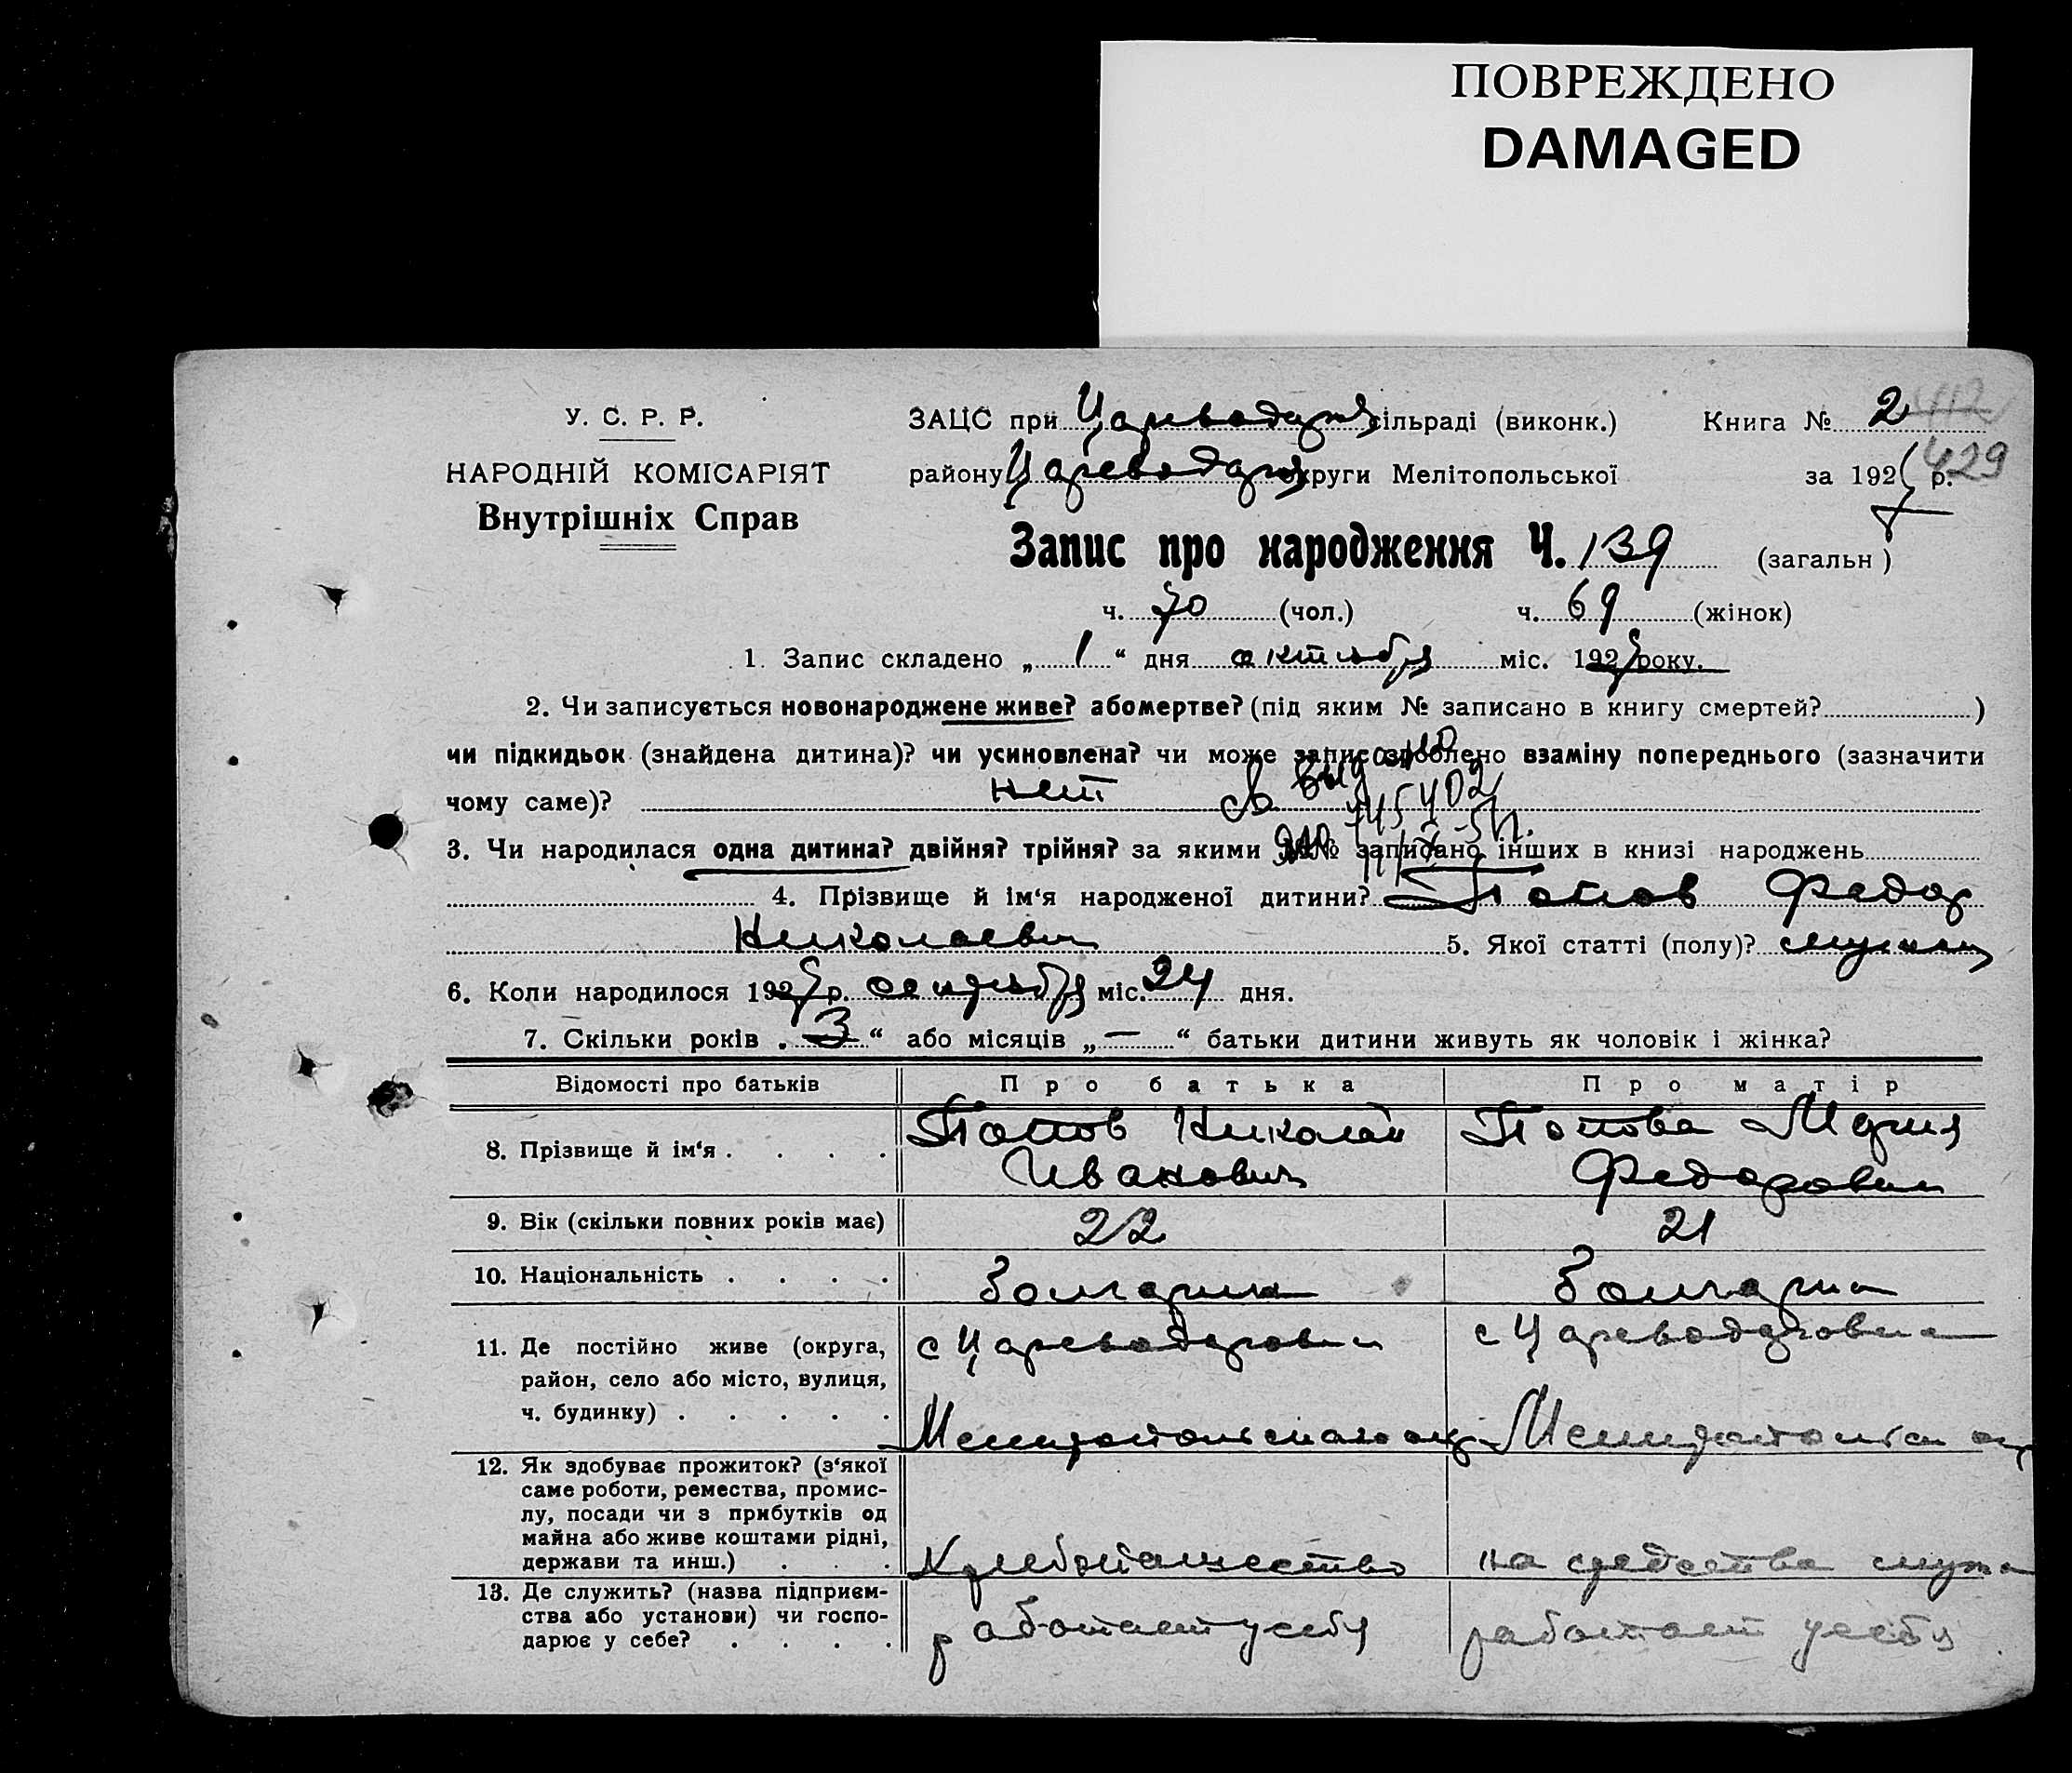 ПОВРЕЖДЕНО
DAMAGED
У. С. Р. Р.
НАРОДНІЙ КОМІСАРІЯТ
Внутрішніх Справ
ЗАЦС при Цареводар сільраді (виконк.) Книга № 2 412
району Цареводар округи Мелітопольської за 192 р. 429
Запис про народження Ч. 139 (загальн)
ч. 70 (чол.) ч. 69 (жінок)
1. Запис складено „ 1 “ дня октября міс. 192 року.
2. Чи записується новонароджене живе? або мертве? (під яким № записано в книгу смертей? )
чи підкидьок (знайдена дитина)? чи усиновлена? чи може запис зроблено взаміну попереднього (зазначити
чому саме)? нет
3. Чи народилася одна дитина? двійня? трійня? за якими №№ записано інших в книзі народжень
4. Прізвище й ім‘я народженої дитини? Попов Федор
Николаевич 5. Якої статті (полу)? мужск
6. Коли народилося 192 р. сентября міс. 24 дня.
7. Скільки років „ 3 “ або місяців „ — “ батьки дитини живуть як чоловік і жінка?
Відомості про батьків Про батька Про матір
8. Прізвище й ім‘я . . . . Попов Николай Попова Мария
Иванович Федоровна
9. Вік (скільки повних років має) 22 21
10. Національність . . . . Болгарин Болгарка
11. Де постійно живе (округа, с Цареводаровка с Цареводаровка
район, село або місто, вулиця,
ч. будинку) . . . . . Мелитопольского окр Мелитопольск окр
12. Як здобуває прожиток? (з‘якої
саме роботи, ремества, промис-
лу, посади чи з прибутків од
майна або живе коштами рідні,
держави та инш.) . . . Хлебопашество на средства мужа
13. Де служить? (назва підприєм-
ства або установи) чи госпо- работает у себя работает у себя
дарює у себе? . . . .